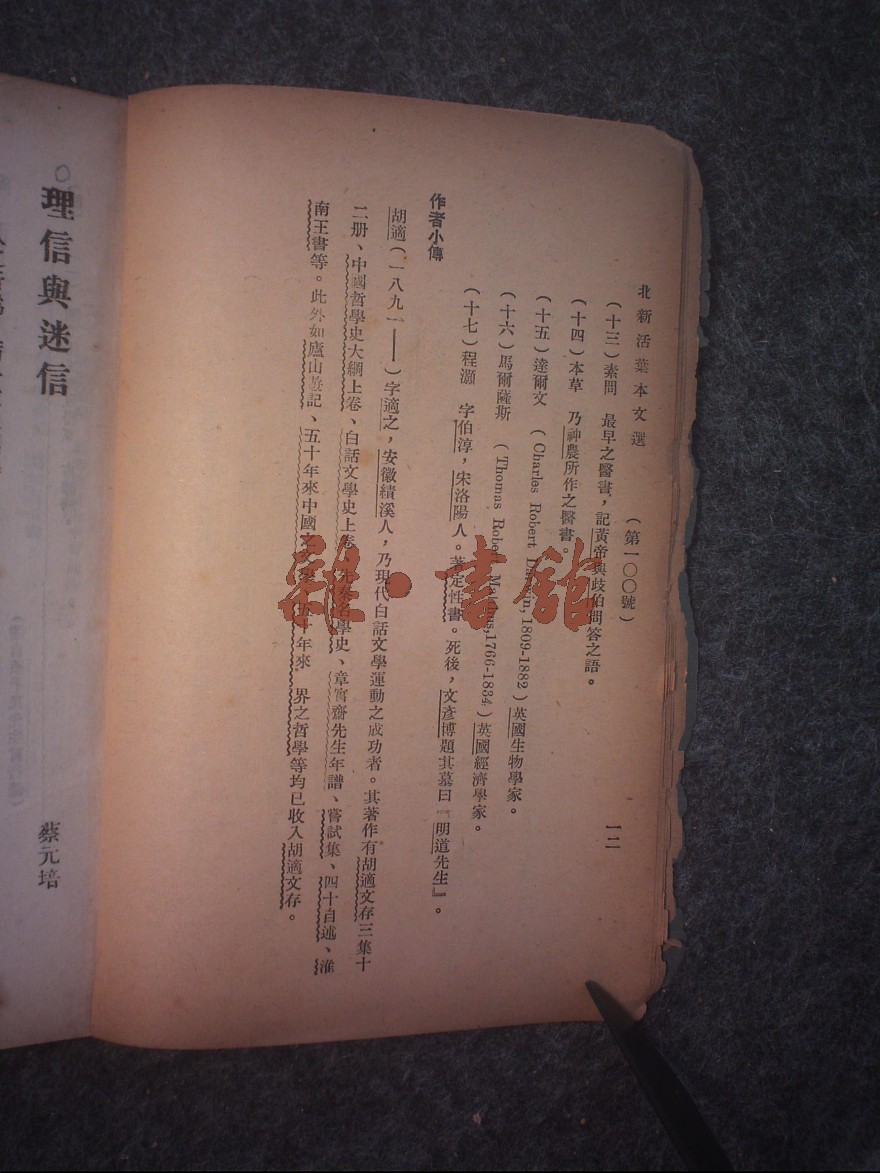 北新活葉本文選 (第一〇〇號) 一二
(十三)素問 最早之醫書,記黃帝與歧伯問答之語。
(十四)本草 乃神農所作之醫書。
(十五)達爾文 (Charles Robert Darwin, 1809-1882)英國生物學家。
(十六)馬爾薩斯 (Thomas Robert Malthus, 1766-1834.)英國經濟學家。
(十七)程灝 字伯淳,宋洛陽人。著定性書。死後,文彥博題其墓曰『明道先生』。
作者小傳
胡適(一八九一——)字適之,安徽績溪人,乃現代白話文學運動之成功者。其著作有胡適文存三集十
二册、中國哲學史大綱上卷、白話文學史上卷、先秦名學史、章實齋先生年譜、嘗試集、四十自述、淮
南王書等。此外如廬山遊記、五十年來中國之文學、五十年來 界之哲學等均已收入胡適文存。
理信與迷信 蔡元培
雜·書館